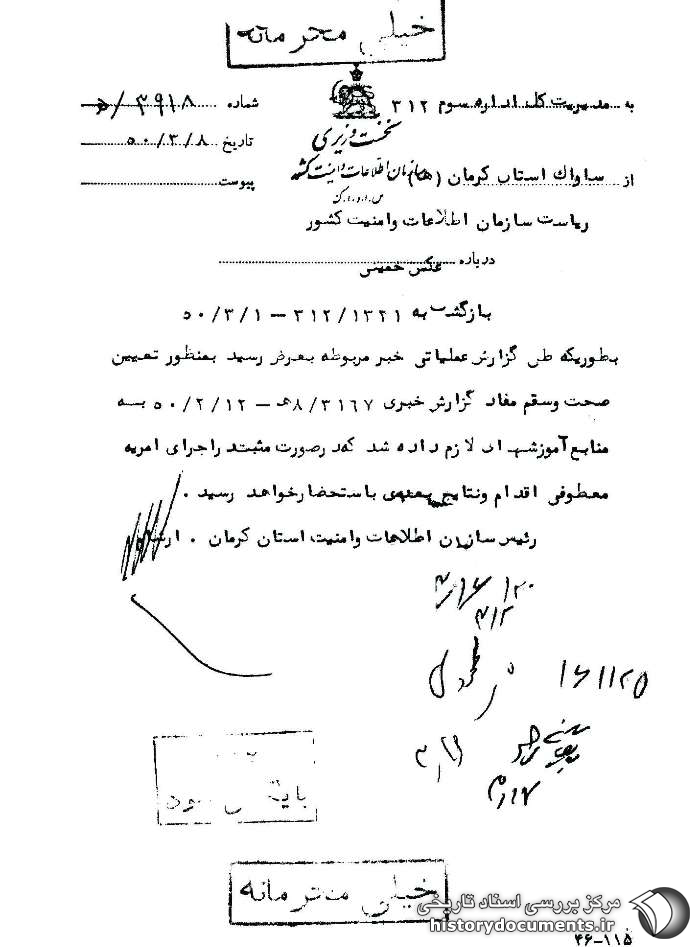 خیلی محرمانه
به مدیریت کل اداره سوم ۳۱۲
شماره ۳۹۱۸/ ﻫ
نخست وزیری
تاریخ ۵۰/۳/۸
از ساواک استان کرمان (ﻫ)
سازمان اطلاعات و امنیت کشور
پیوست
س.ا.و.ا.ک
ریاست سازمان اطلاعات و امنیت کشور
درباره عکس خمینی
بازگشت به ۳۱۲/۱۳۲۱ – ۵۰/۳/۱
بطوریکه طی گزارش عملیاتی خبر مربوطه بعرض رسید بمنظور تعیین
صحت وسقم مفاد گزارش خبری ۸/۳۱۶۷ﻫ – ۵۰/۲/۱۲ به
منابع آموزشهای لازم داده شد که درصورت مثبت در اجرای امریه
معطوفی اقدام ونتایج بعدی باستحضار خواهد رسید .
رئیس سازمان اطلاعات وامنیت استان کرمان .
۳۱۲
۱۶۱۱۲۵
خیلی محرمانه
مرکز بررسی اسناد تاریخی
historydocuments.ir
۴۶-۱۱۵